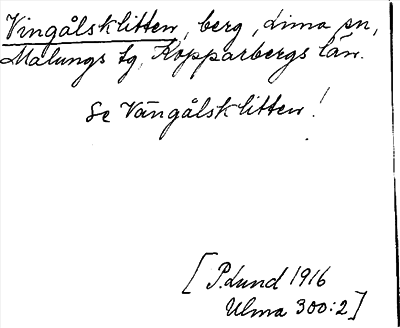 Vingålsklitten, berg, Lima sn,
Malungs tg, Kopparbergs län.
Se Vångålsklitten!
[P. Lund 1916
Ulma 300:2]